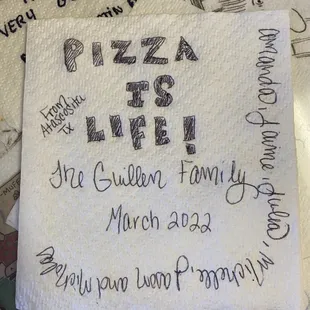 VERY
PIZZA
IS
LIFE!
From
Atascosita
TX
The Guillen Family
March 2022
Amanda, Jaime, Julia,
Michelle, Jason and